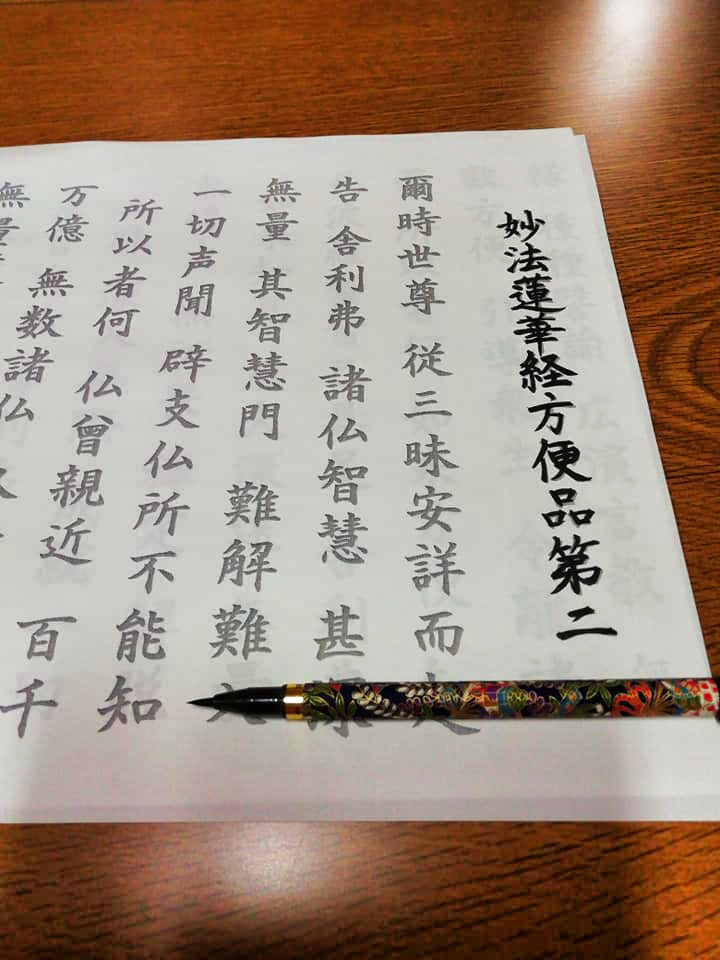 妙法蓮華経方便品第二
爾時世尊 従三昧安詳而
告舎利弗 諸仏智慧 甚深
無量 其智慧門 難解難
一切声聞 辟支仏所不能知
所以者何 仏曾親近 百千
万億 無数諸仏
無量